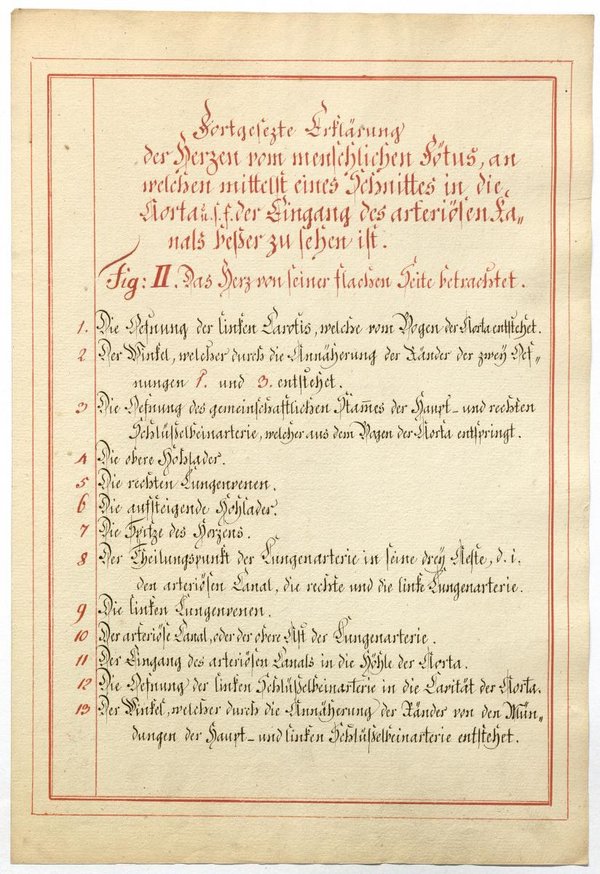 Fortgesezte Erklärung
der Herzen vom menschlichen Fötus, an
welchen mittelst eines Schnittes in die
Aorta u. s. f. der Eingang des arteriösen Ka„
nals beßer zu sehen ist.
Fig: II. Das Herz von seiner flachen Seite betrachtet.
1. Die Oefnung der linken Carotis, welche vom Bogen der Aorta entstehet.
2. Der Winkel, welcher durch die Annäherung der Ränder der zwey Oef„
nungen 1. und 3. entstehet.
3 Die Oefnung des gemeinschaftlichen Stam̅es der Haupt- und rechten
Schlüßelbeinarterie, welcher aus dem Bogen der Aorta entspringt.
4 Die obere Hohlader.
5 Die rechten Lungenvenen.
6 Die aufsteigende Hohlader.
7 Die Spitze des Herzens.
8 Der Theilungspunkt der Lungenarterie in seine drey Aeste, d. i.
den arteriösen Canal, die rechte und die linke Lungenarterie.
9 Die linken Lungenvenen.
10 Der arteriöse Canal, oder der obere Ast der Lungenarterie.
11 Der Eingang des arteriösen Canals in die Höhle der Aorta.
12 Die Oefnung der linken Schlüßelbeinarterie in die Cavität der Aorta.
13 Der Winkel, welcher durch die Annäherung der Ränder von den Mün„
dungen der Haupt- und linken Schlüßelbeinarterie entstehet.